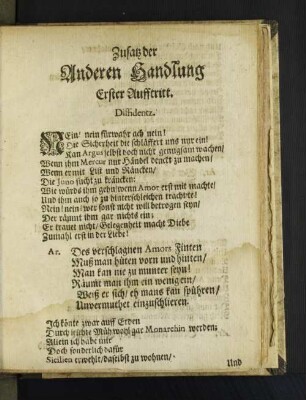 Zusatz der
Anderen Handlung
Erster Aufftritt.
Diffidentz.
NEin! nein fürwahr ach nein!
Die Sicherheit die schläffert uns nur ein/
Kan Argus selbst doch nicht genugsam wachen/
Wenn ihm Mercur nur Händel denckt zu machen/
Wenn er mit List und Räncken/
Die Juno sucht zu kräncken:
Wie würds ihm gehn/ wenn Amor erst mit wachte/
Und ihm auch so zu hinterschleichen trachtete/
Nein! nein/ wer sonst nicht will betrogen seyn/
Der räumt ihm gar nichts ein;
Er trauet nicht/ Gelegenheit macht Diebe
Zumahl erst in der Liebe!
Ar. Des verschlagnen Amors Finten
Muß man hüten vorn und hinten/
Man kan nie zu munter seyn!
Räumt man ihm ein wenig ein/
Weiß er sich/ eh mans kan spühren/
Unvermuthet einzuschlieren.
Ich könte zwar auff Erden
Durch meine gar Monarchin werden;
Allein ich habe mir
Doch sonderlich dafür
Sicilien erwehlt/ daselbst zu wohnen/
Und